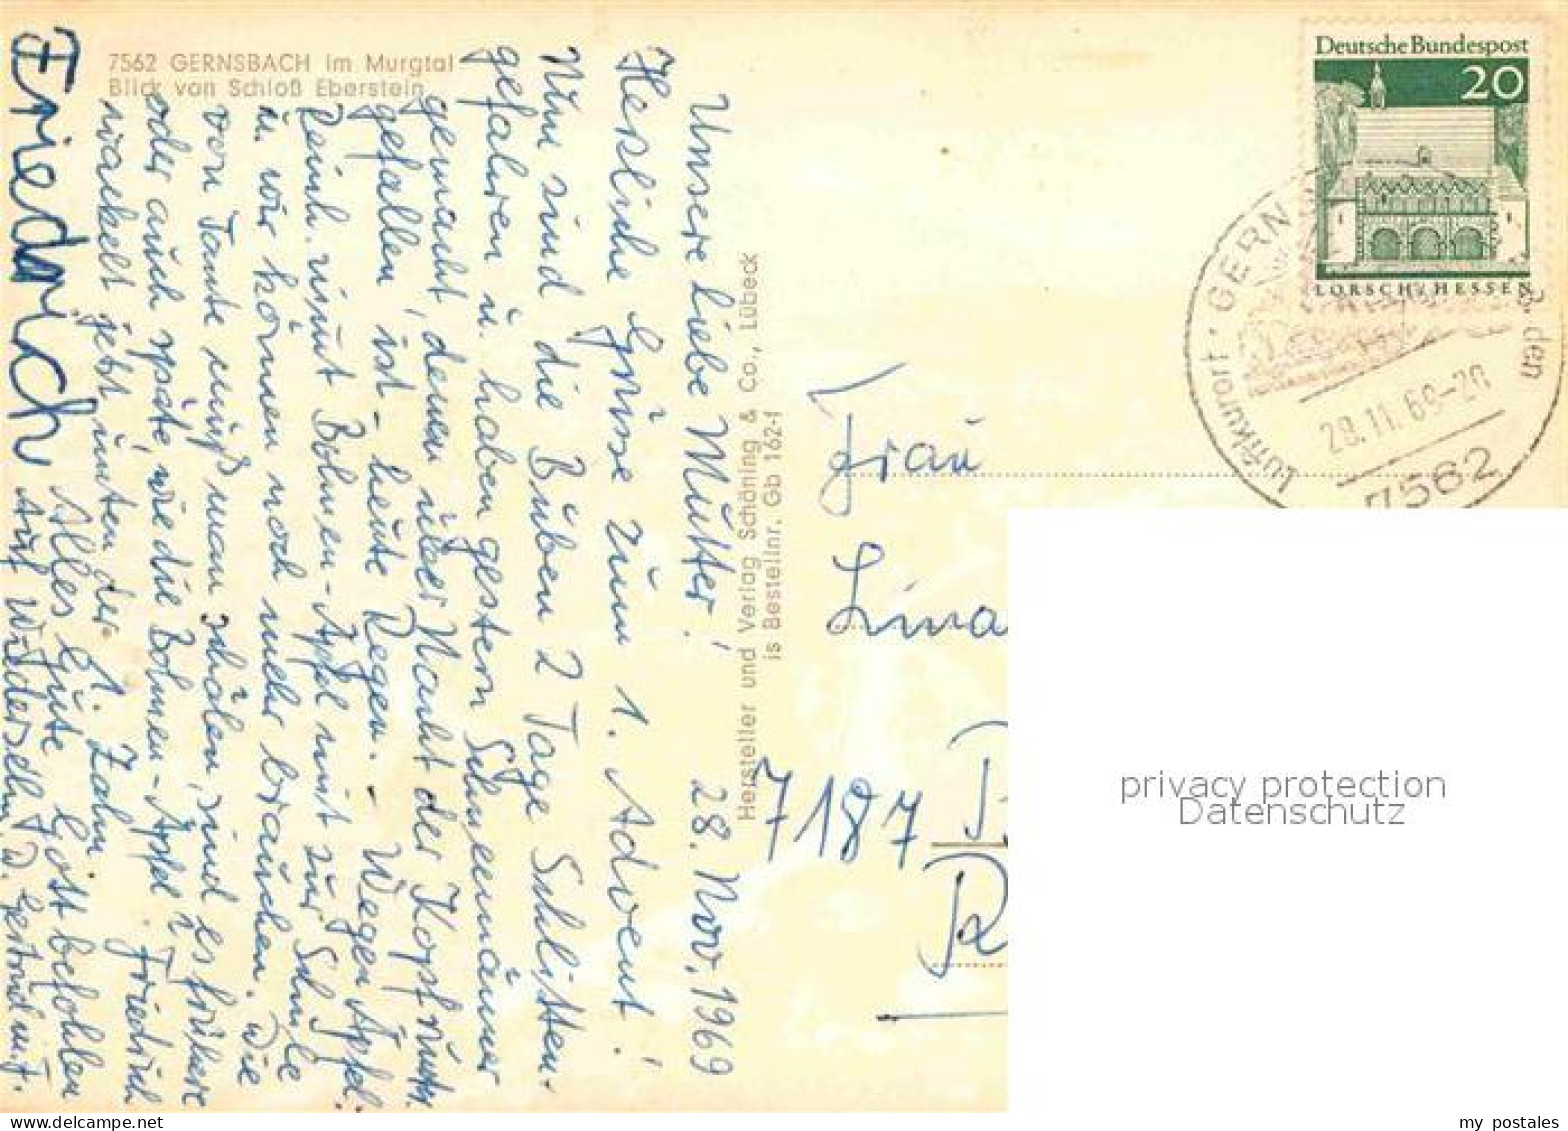 7562 GERNSBACH im Murgtal
Blick von Schloß Eberstein
Unsere liebe Mutter! 28. Nov. 1969
Herzliche Grüsse zum 1. Advent!
Nun sind die Buben 2 Tage Schlitten-
gefahren u. haben gestern Schneemänner
gemacht, denen über Nacht der Kopf runter
gefallen ist - heute Regen. - Wegen Äpfel:
Reinh. nimt Bohnen-Äpfel mit zur Schule
u. wir können noch mehr brauchen. Die
von Tante muß man schälen, sind es frühere
oder auch späte, wie die Bohnen-Äpfel? Friedrich
wackelt jetzt unten der 1. Zahn.
Alles Gute Gott befohlen
Auf Wiedersehn D. Gertrud u. F.
Friedrich
Hersteller und Verlag Schöning & Co., Lübeck
is Bestellnr. Gb 162-1
Deutsche Bundespost
20
LORSCH/HESSEN
Luftkurort · GERN
28.11.69-20
7562
Frau
Lina
7187
privacy protection
Datenschutz
my postales